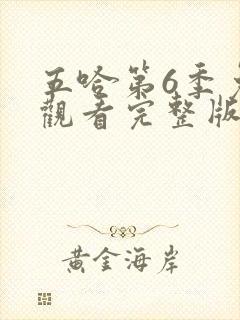 五哈第6季
觀看完整版
黃金海岸